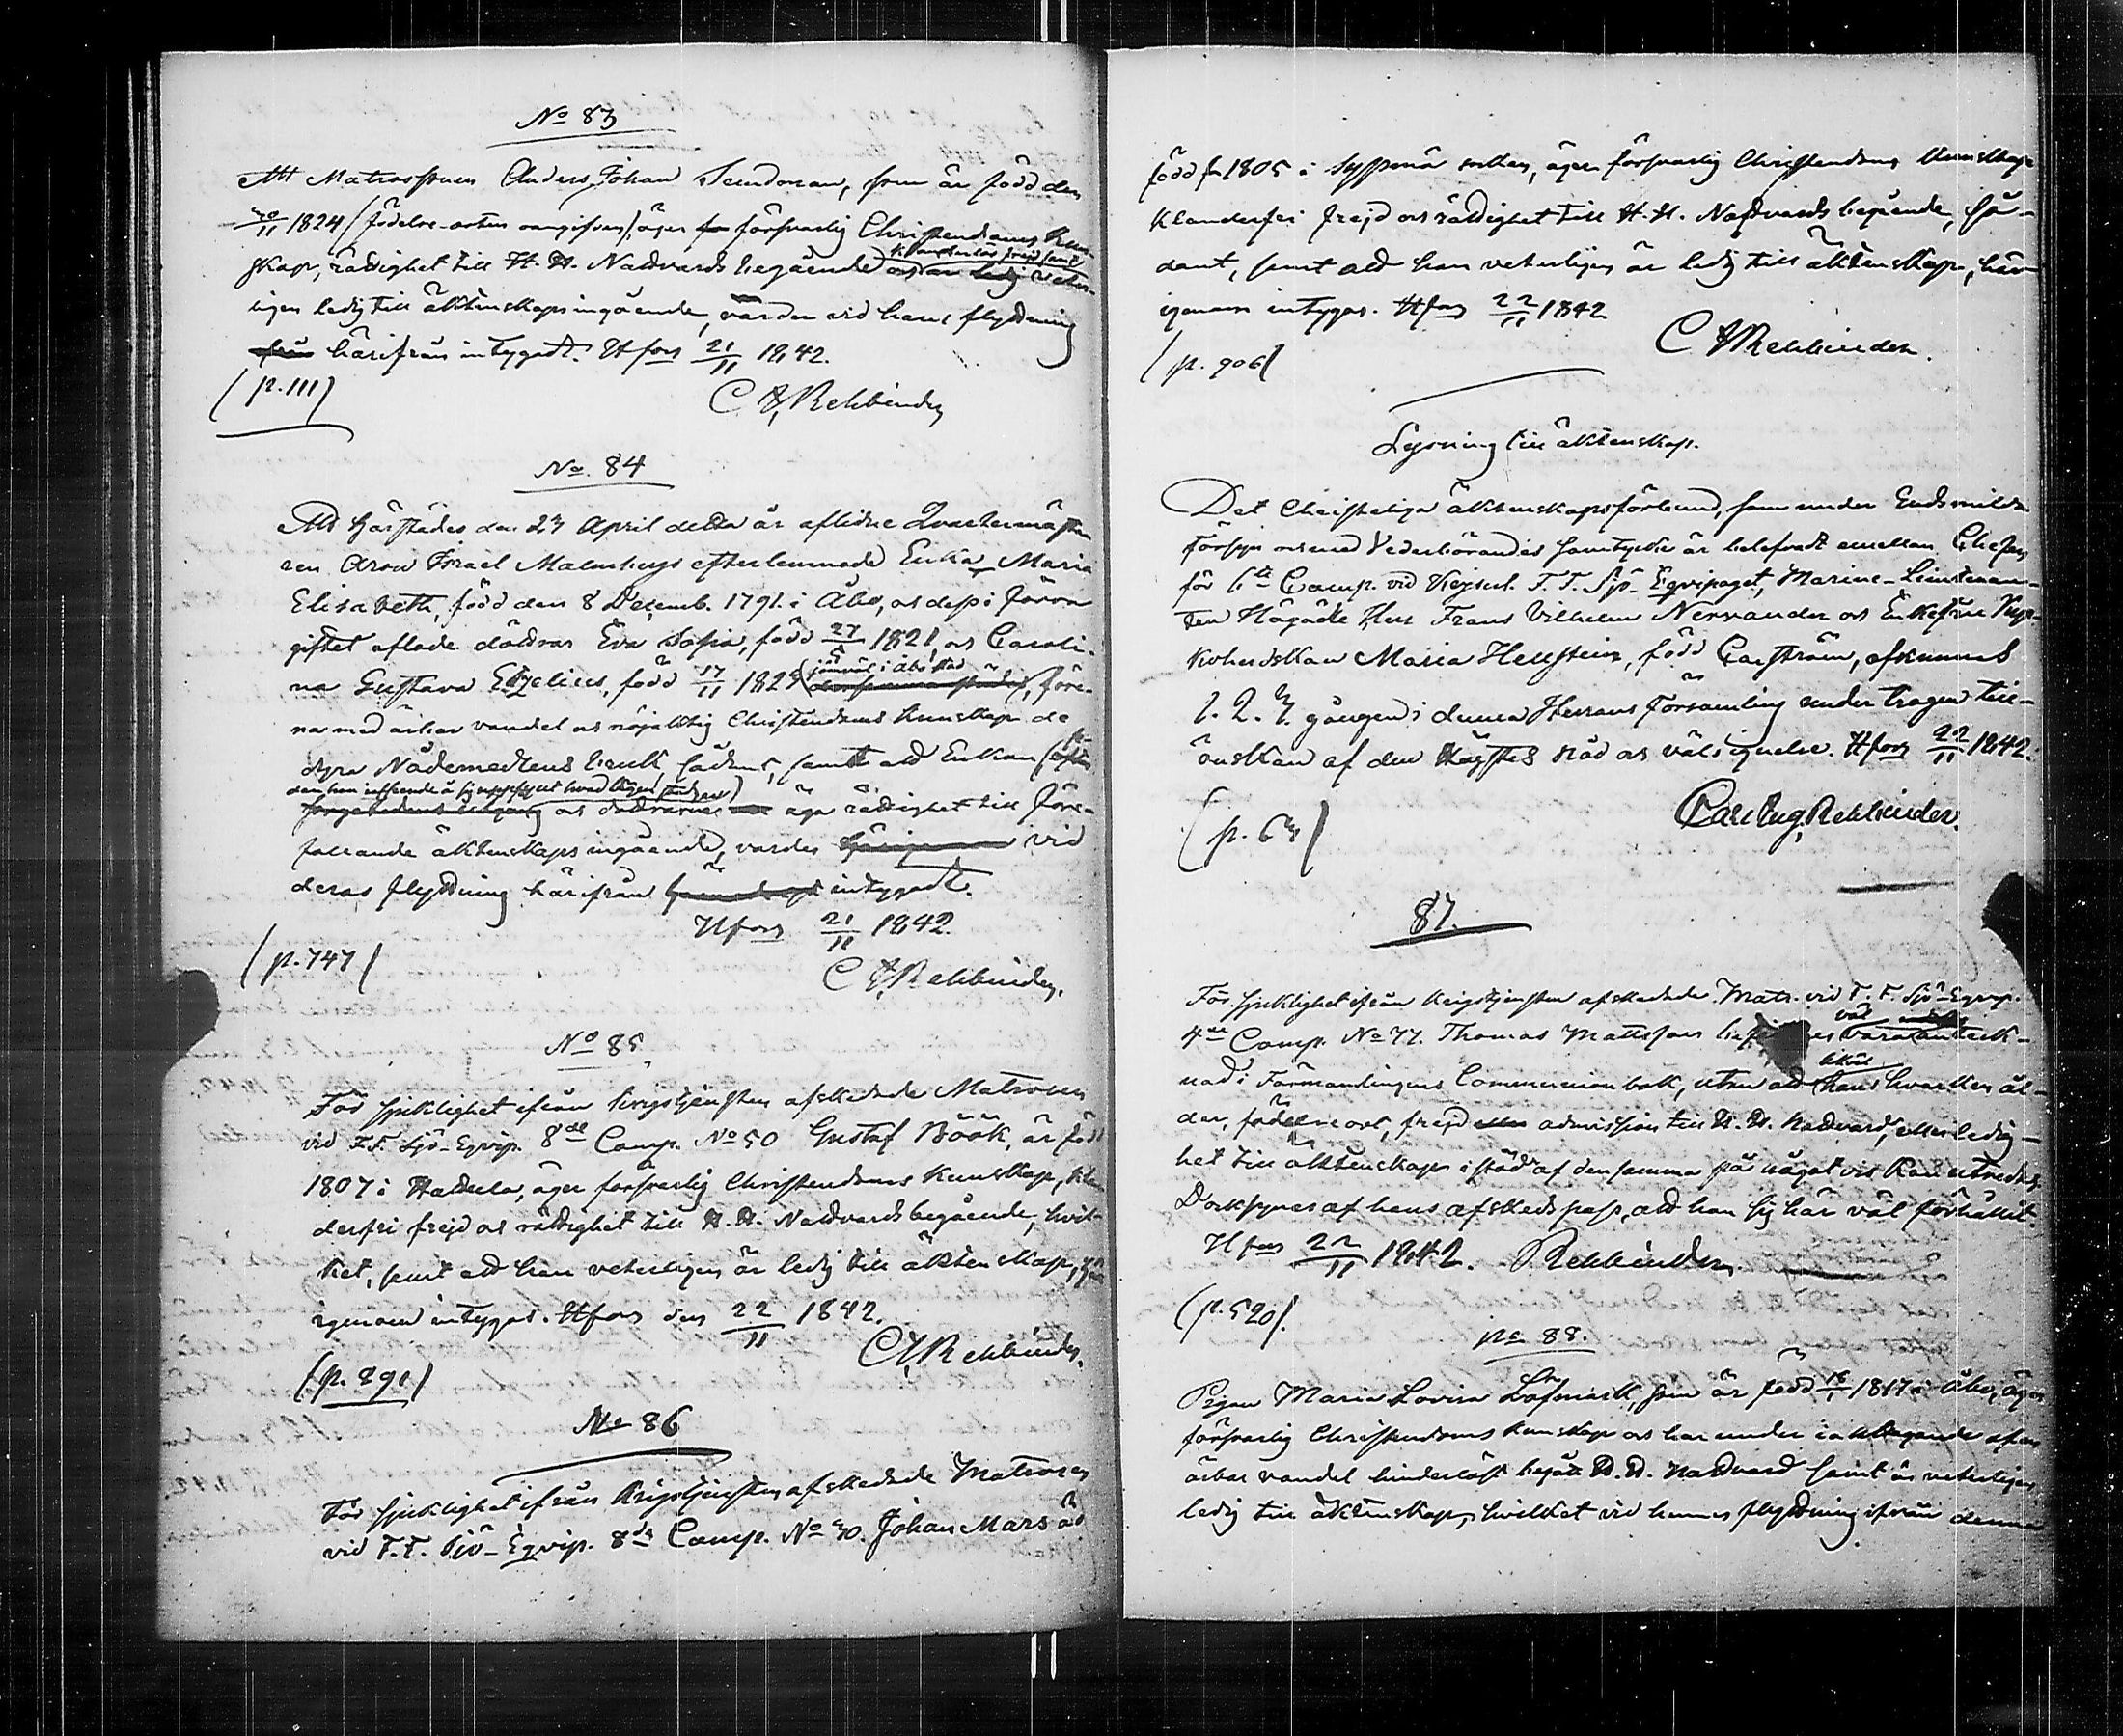 No 83
Att Matrossonen Anders Johan Sundman, som är född den
30/11 1824 (födelse-orten oangifven), äger försvarlig Christendoms kun-
klanderlös frejd samt
skap, rättighet till H. H. Nattvards begående och är ledig veter-
ligen ledig till äktenskaps ingående, varder vid hans flyttning
från härifrån intygadt. Hfors 21/11 1842.
(p. 111)
C A Rehbinder
No. 84
Att härstädes den 23 April detta år aflidne Qvartermästa
ren Aron Israel Malmbergs efterlemnade Enka Maria
Elisabeth, född den 8 Decemb. 1791. i Åbo, och dess i förra
giftet aflade döttrar Eva Sofia, född 27/5 1821, och Caroli-
jämväl i Åbo stad
na Gustava Ezelius, född 17/11 1823, före-
na med ärbar vandel och nöjaktig Christendoms kunskap de
dyra Nådemedlens bruk, sådant, samt att Enkan
och döttrarne äga rättighet till före-
fallande äktenskaps ingående, varder vid
deras flyttning härifrån intygadt.
Hfors 21/11 1842.
(p. 747)
C A Rehbinder.
No 85
För sjuklighet ifrån krigstjensten afskedade Matrosen
vid F.F. Sjö-Eqvip. 8de Comp. No 50 Gustaf Böök, är född
1807 i Hattula, äger försvarlig Christendoms kunskap, klan
derfri frejd och rättighet till H. H. Nattvards begående, hvil-
ket, samt att han veterligen är ledig till äktenskap, här
igenom intygas. Hfors den 22/11 1842.
C A Rehbinder.
(p. 891)
No 86
För sjuklighet ifrån Krigstjensten afskedade Matrosen
vid F.F. Sjö-Eqvip. 8de Comp. No 30. Johan Mars är
född 1805 i socken, äger försvarlig Christendoms kunskap
klanderfri frejd och rättighet till H. H. Nattvards begående, så-
dant, samt att han veterligen är ledig till äktenskap, här
igenom intygas. Hfors 22/11 1842
C A Rehbinder.
(p. 906)
Lysning till äktenskap.
Det Christeliga äktenskapsförbund, som under Guds milda
försyn och med Vederbörandes samtycke är belefvadt emellan Chefen
för 6te Comp. vid Kejserl. F.F. Sjö-Eqvipaget, Marine-Lieutenan-
ten Högädle Herr Frans Vilhelm Nervander och Enkefru
Maria Hellstein, född Garström, afkunnas
1. 2. 3. gången i denna Herrans Församling under trogen till-
önskan af den Högstes nåd och välsignelse. Hfors 22/11 1842.
(p. 63)
Carl Aug. Rehbinder.
87.
För sjuklighet ifrån krigstjensten afskedade Matr. vid F.F. Sjö-Eqvip.
väl
4de Comp. No 77. Thomas Mattsson vara anteck-
nad i Församlingens Communionbok, utan att hans hvarken ål-
der, födelseort, frejd eller admission till H. H. Nattvard, eller ledig-
het till äktenskap i stöd af densamma på något vis kan utredas.
Dock synes af hans afskedspass, att han sig här väl förhållit.
Hfors 22/11 1842. Rehbinder.
(p. 520).
No 88.
Pigan Maria Lovisa Löfmark, som är född 16/1 1817 i Åbo, äger
försvarlig Christendoms kunskap och har under iakttagande af en
ärbar vandel hinderlöst begått H. H. Nattvard samt är veterligen
ledig till äktenskap, hvilket vid hennes flyttning ifrån denna